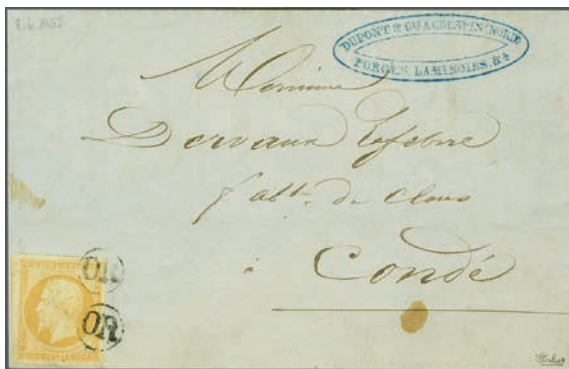 DUPONT & CHACRESPIN (NORD)
FORGES, LAMINOIRS, &a
Monsieur
Dervaux Lefebvre
fabt. de clous
à Condé
OR
OR